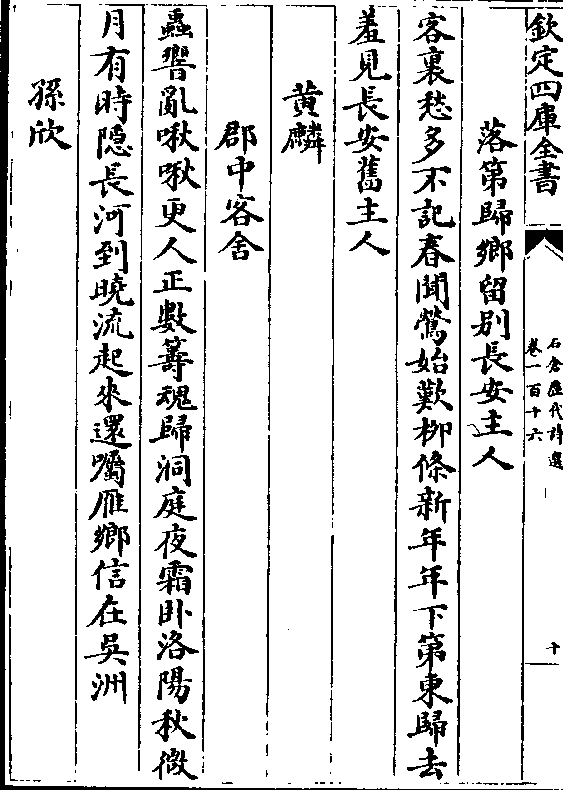 欽定四庫全書
石倉歷代詩選
卷一百十六
十
落第歸鄉留別長安主人
客裏愁多不記春聞鶯始歎栁條新年年下第東歸去
羞見長安舊主人
黄麟
郡中客舍
蟲響亂啾啾更人正數籌魂歸洞庭夜霜卧洛陽秋微
月有時隱長河到曉流起來還囑雁鄉信在吳洲
孫欣